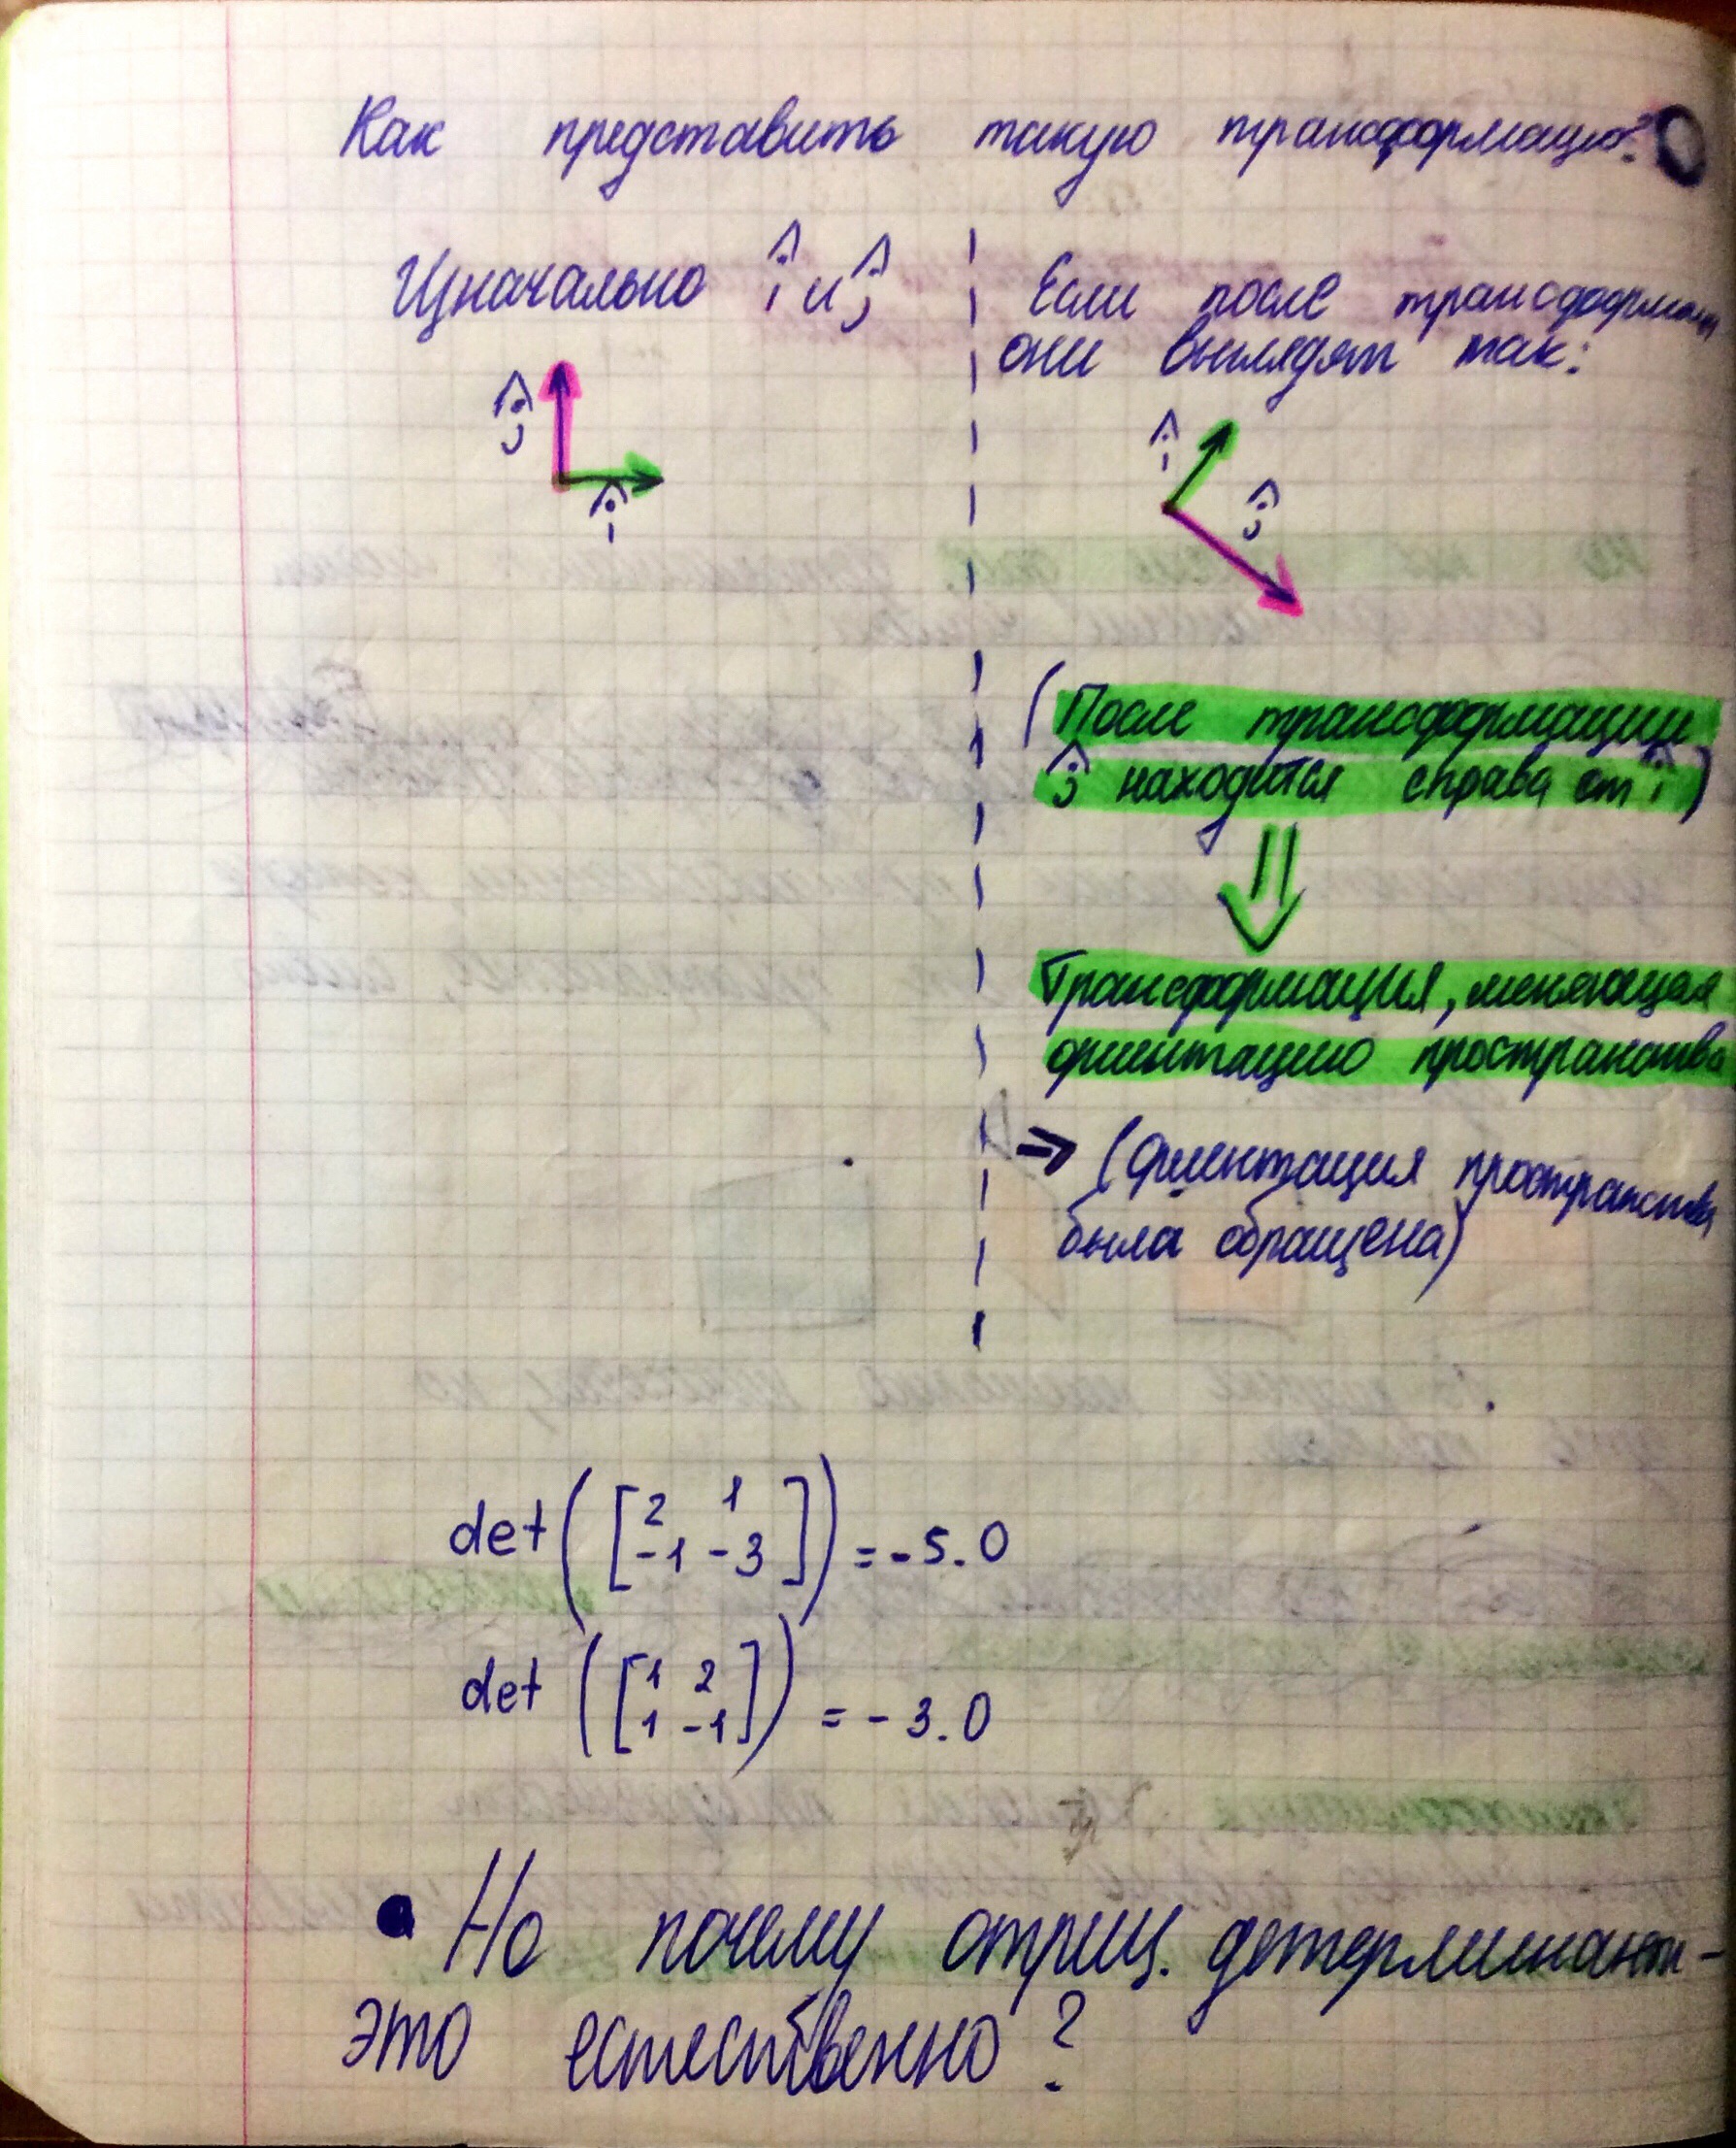 Как представить такую трансформацию?
Изначально î и ĵ
Если после трансформации
они выглядят так:
ĵ
î
î
ĵ
(После трансформации
ĵ находится справа от î)
⇓
Трансформация, меняющая
ориентацию пространства
⇒ (Ориентация пространства
была обращена)
det([2 1
-1 -3]) = -5.0
det([1 2
1 -1]) = -3.0
• Но почему отриц. детерминант -
это естественно?